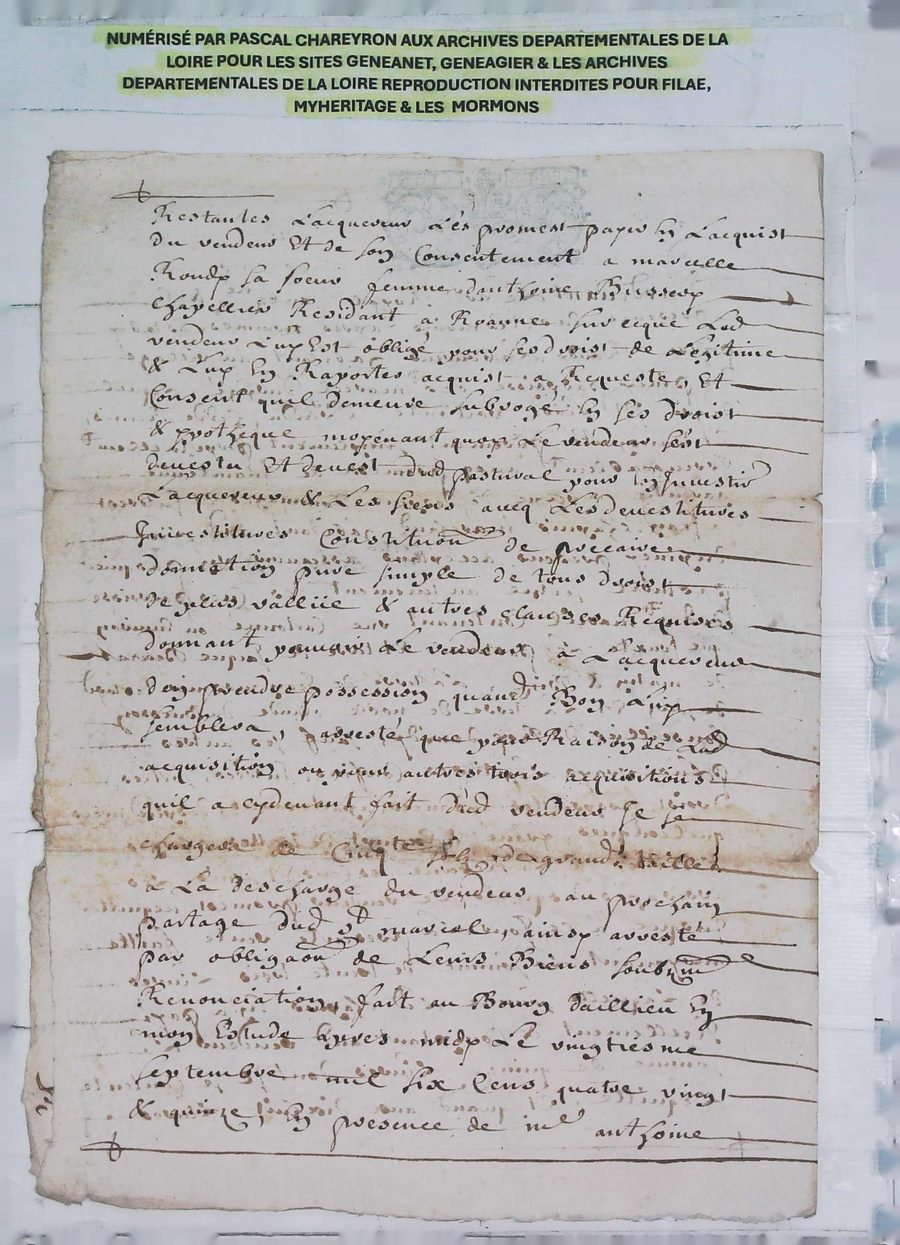 NUMÉRISÉ PAR PASCAL CHAREYRON AUX ARCHIVES DEPARTEMENTALES DE LA
LOIRE POUR LES SITES GENEANET, GENEAGIER & LES ARCHIVES
DEPARTEMENTALES DE LA LOIRE REPRODUCTION INTERDITES POUR FILAE,
MYHERITAGE & LES MORMONS
Restantes Lacquereur Les promest payer En Lacquist
du vendeur Et de son Consentement a marcelle
sa soeur femme danthoine
Chapellier Residant a Roanne Lad
vendeur Luy Est obligé pour ses droist de Legitime
& Luy En Raporter acquist a Requeste, Et
Consent quil demeure subrogé En ses droist
& ypotheque moyenant quoy Le vendeur sest
devestu Et devest dud pastural pour En Investir
Lacquereur & Les siens avecq Les devestitures
Investitures Constitution de precaire
donnation pure simple de tous droist
de plus vallüe & autres clauses Requises
donnant pouvoir Le vendeur a Lacquereur
den prendre possession quand Bon Luy
semblera, arresté que pour Raison de Lad
acquisition ou pour autres trois acquisitions
quil a cydevant fait dud vendeur Il se
chargera de Cinq de grande taille
a La descharge du vendeur au prochain
partage dud marcel, ainsy arresté
par obligaon de Leurs Biens
Renonciation, fait au Bourg daillieu En
mon Estude apres midy Le vingtiesme
septembre mil six Cens quatre vingt
& quinze, En presence de me anthoine